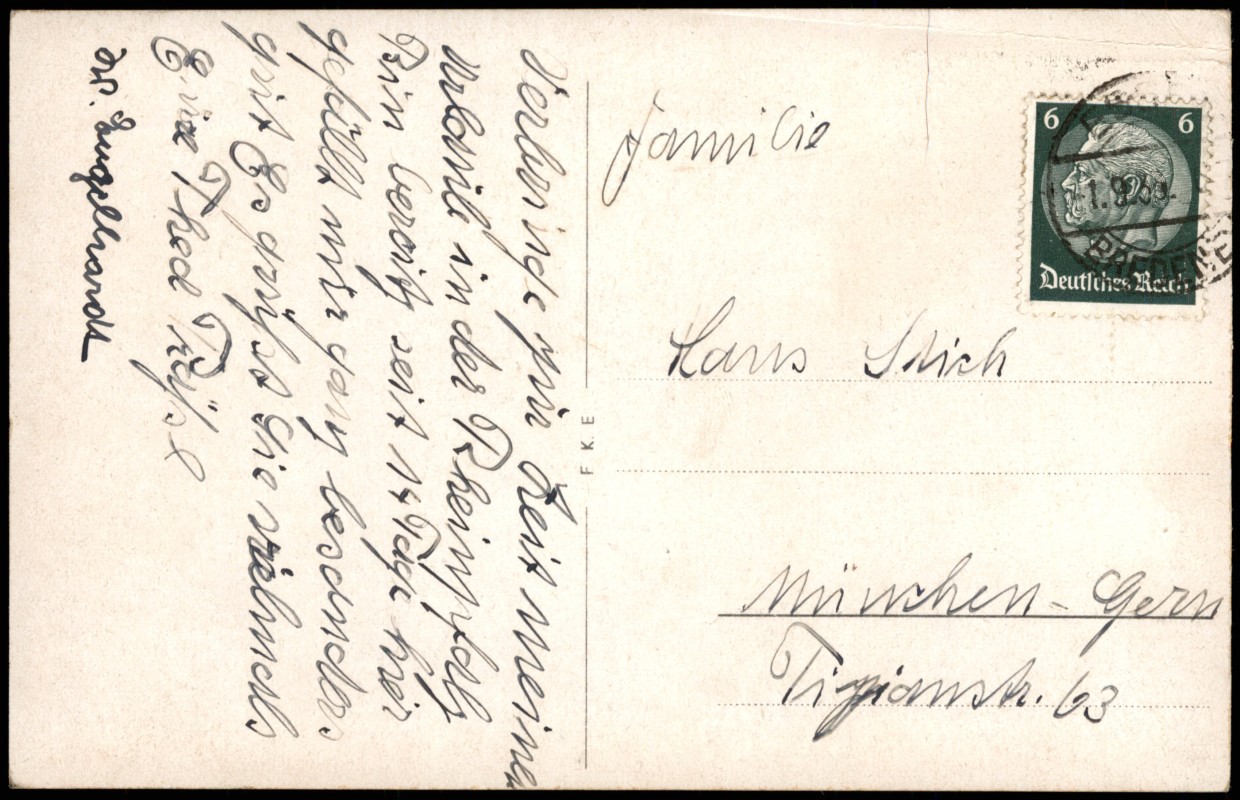 Verbringe zur Zeit meinen
Urlaub in der Rheinpfalz
Bin bereits seit 14 Tage hier
gefällt mir ganz besonders
gut Es grüsst Sie vielmals
Eure Thea
Familie
Hans Stich
München-Gern
Tizianstr. 63
F.K.E
6 6
Deutsches Reich